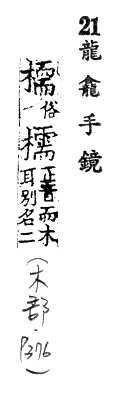 21龍龕手鏡
俗檽正音而木耳別名二
(木部·P376)